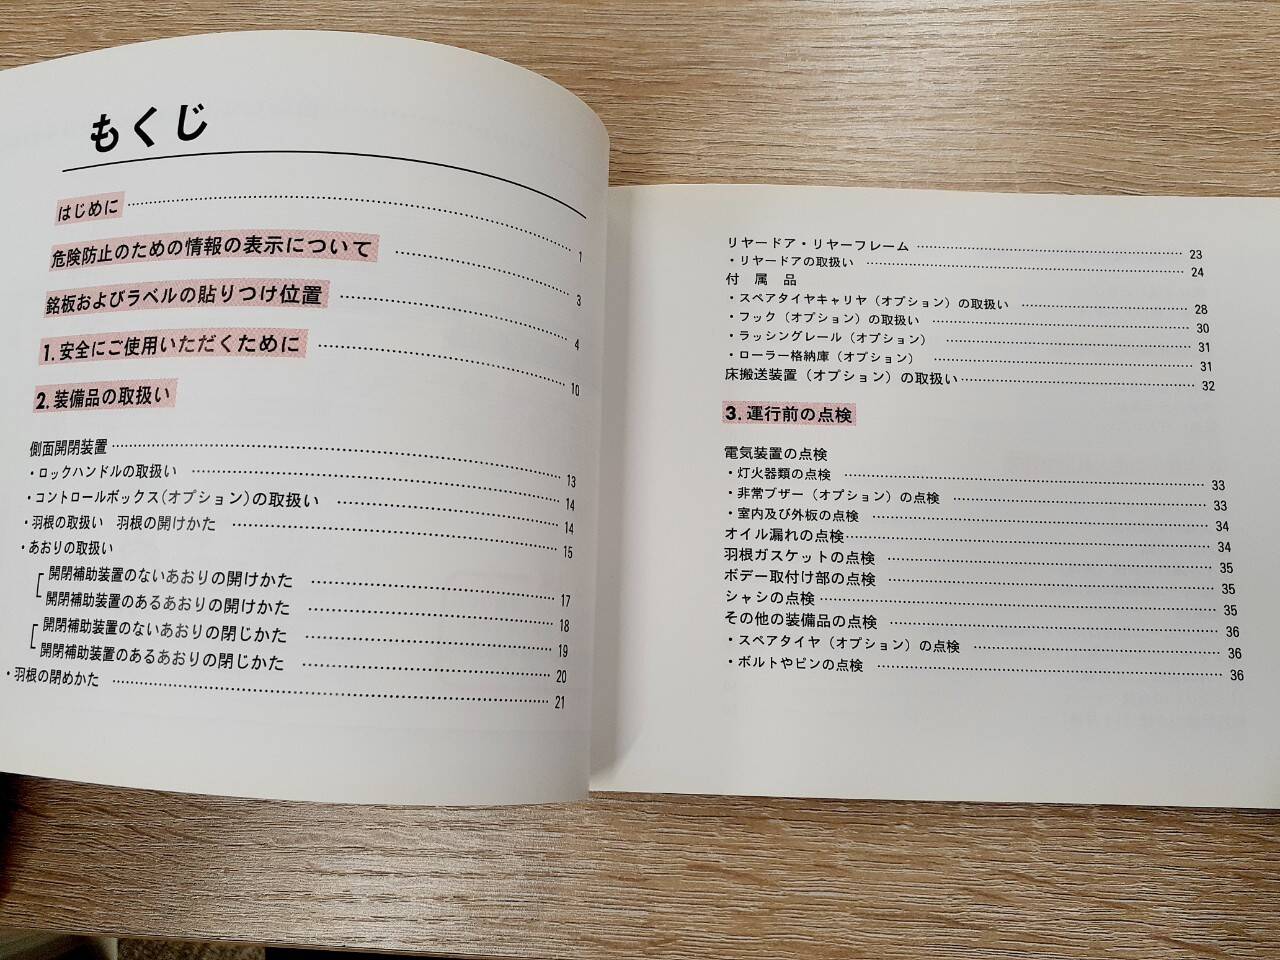 もくじ
はじめに 1
危険防止のための情報の表示について 3
銘板およびラベルの貼りつけ位置 4
1. 安全にご使用いただくために 10
2. 装備品の取扱い
側面開閉装置 13
・ロックハンドルの取扱い 14
・コントロールボックス(オプション)の取扱い 14
・羽根の取扱い 羽根の開けかた 15
・あおりの取扱い
開閉補助装置のないあおりの開けかた 17
開閉補助装置のあるあおりの開けかた 18
開閉補助装置のないあおりの閉じかた 19
開閉補助装置のあるあおりの閉じかた 20
・羽根の閉めかた 21
リヤードア・リヤーフレーム 23
・リヤードアの取扱い 24
付属品
・スペアタイヤキャリヤ(オプション)の取扱い 28
・フック(オプション)の取扱い 30
・ラッシングレール(オプション) 31
・ローラー格納庫(オプション) 31
床搬送装置(オプション)の取扱い 32
3. 運行前の点検
電気装置の点検
・灯火器類の点検 33
・非常ブザー(オプション)の点検 33
・室内及び外板の点検 34
オイル漏れの点検 34
羽根ガスケットの点検 35
ボデー取付け部の点検 35
シャシの点検 35
その他の装備品の点検 36
・スペアタイヤ(オプション)の点検 36
・ボルトやピンの点検 36